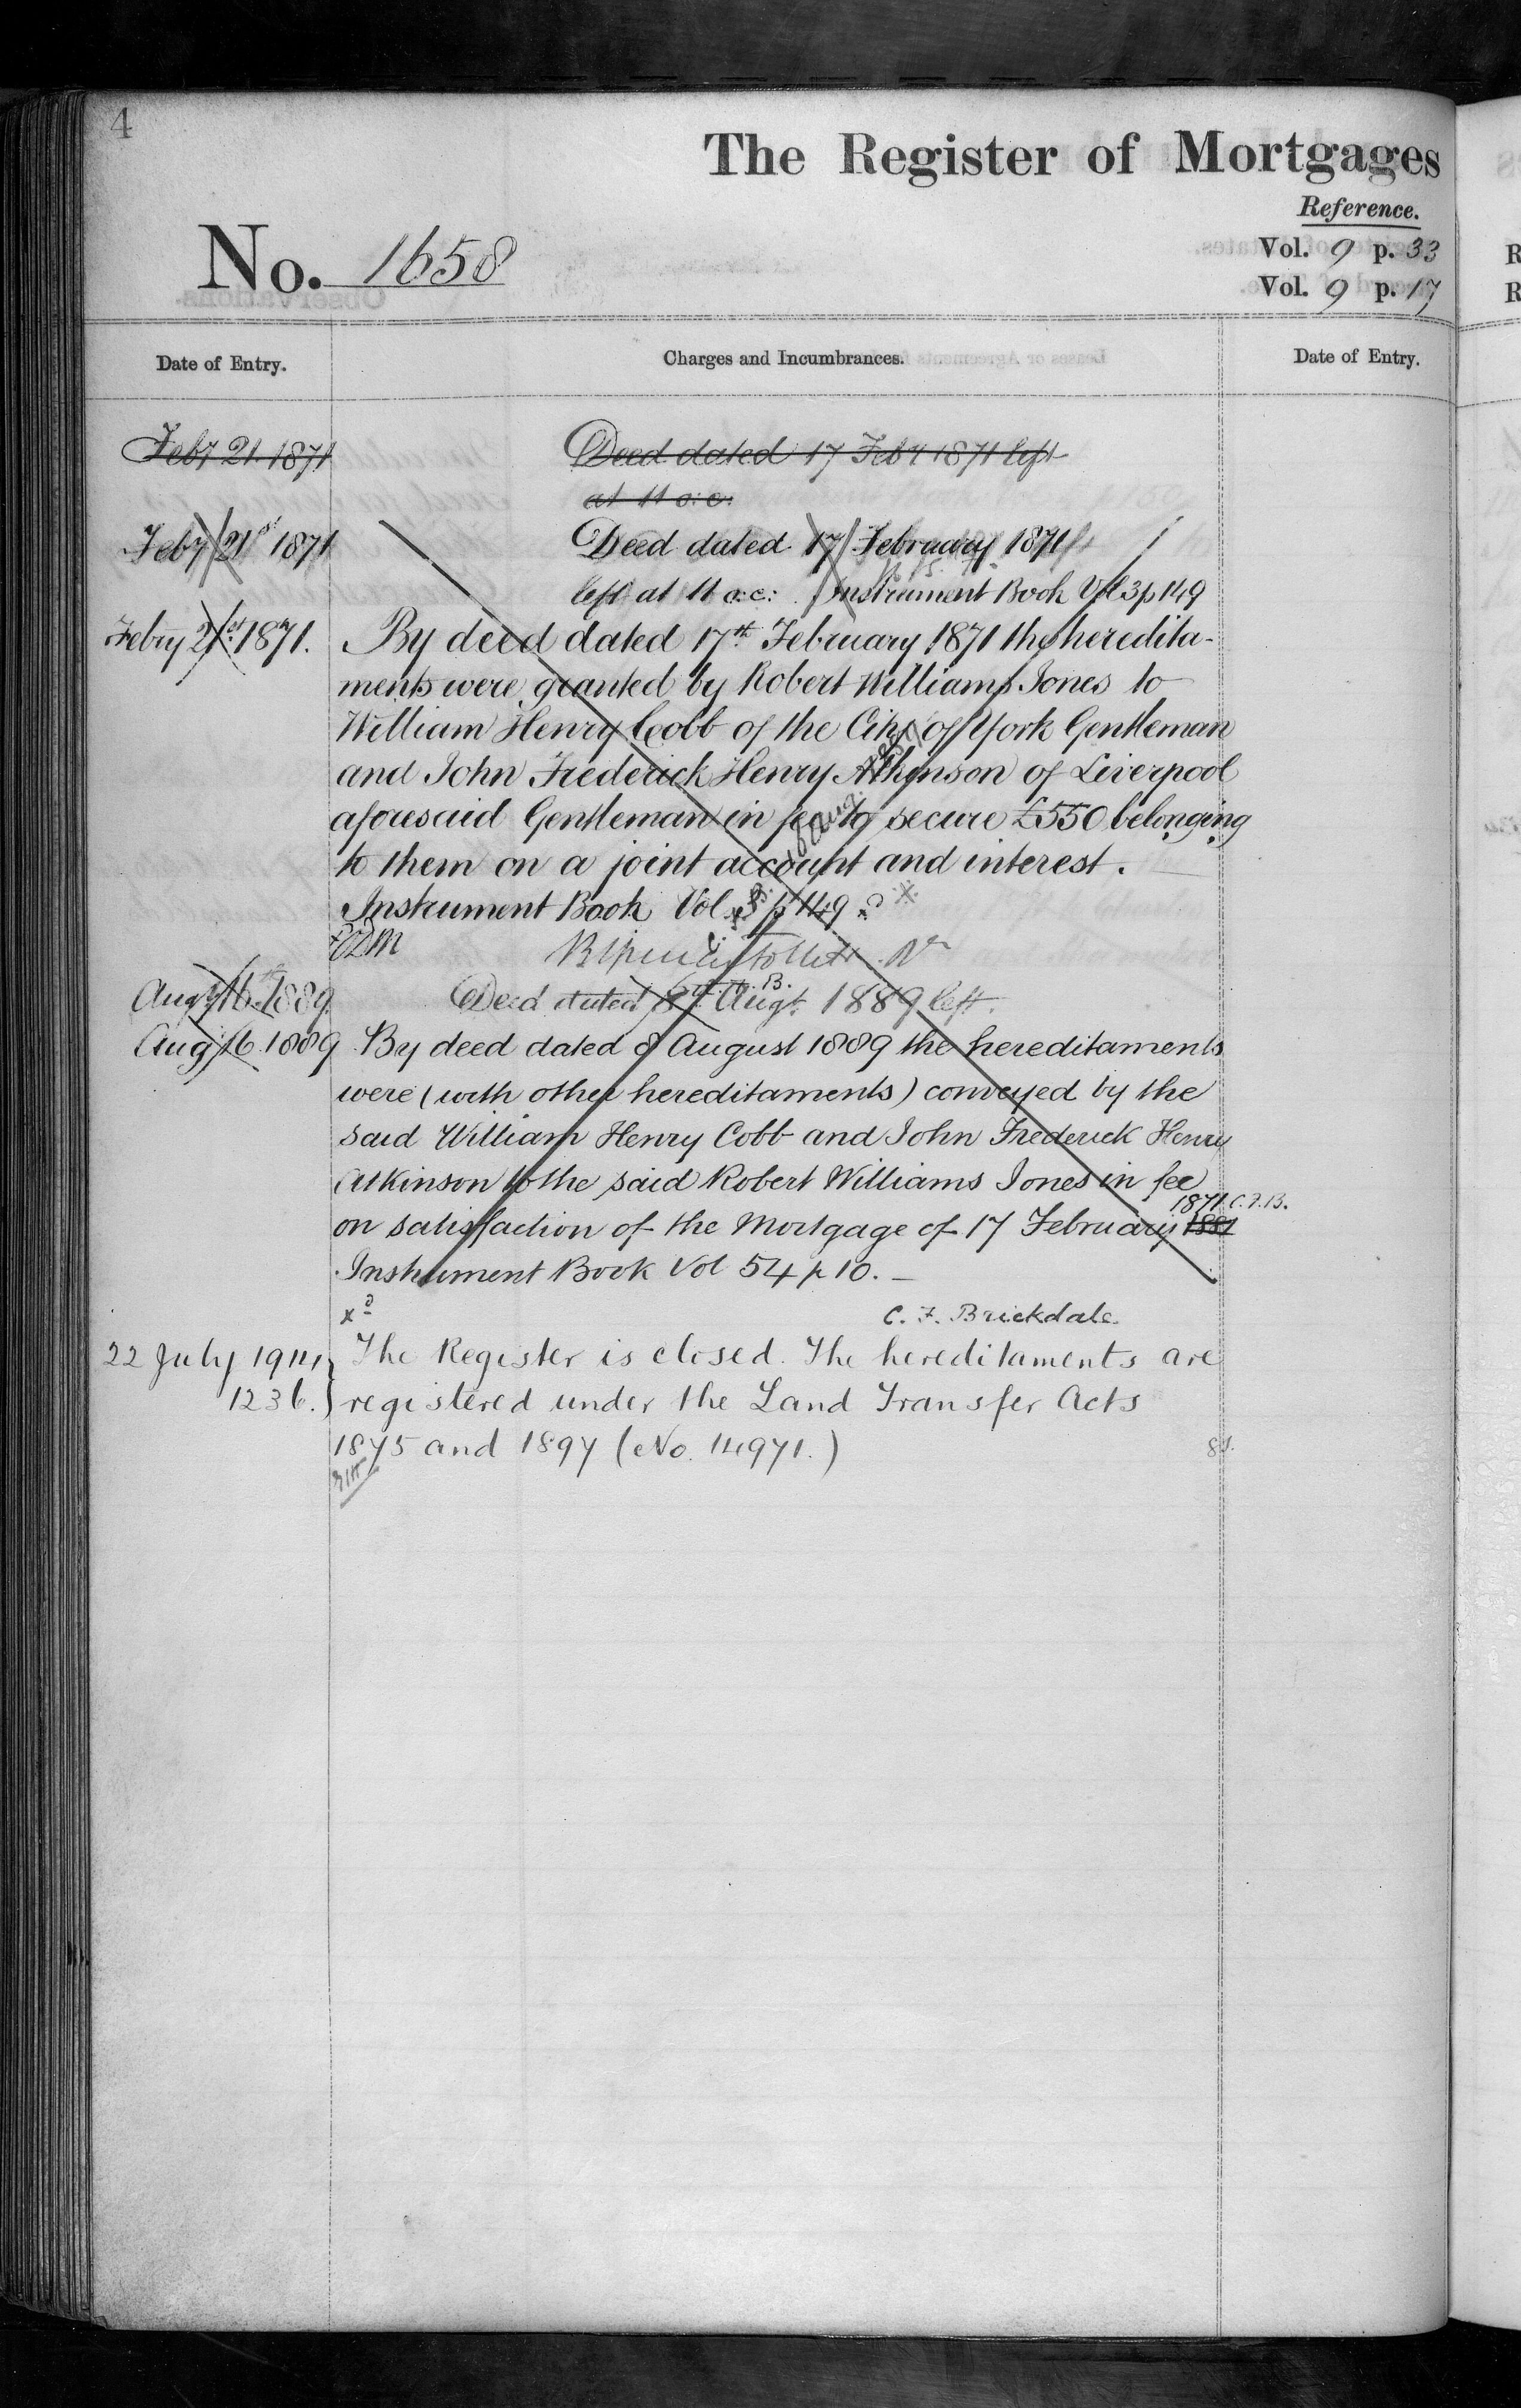 4
The Register of Mortgages
Reference.
No. 1658
Vol. 9 p. 33
Vol. 9 p. 17
Date of Entry.
Charges and Incumbrances.
Date of Entry.
Feby 21 1871
Deed dated 17 Feby 1871 left
at 11 o.c.
Feby 21st 1871
Deed dated 17 February 1871
left at 11 o.c: Instrument Book Vol 3 p 149
Febry 21st 1871.
By deed dated 17th February 1871 the heredita-
ments were granted by Robert Williams Jones to
William Henry Cobb of the City of York Gentleman
and John Frederick Henry Atkinson of Liverpool
aforesaid Gentleman in fee to secure £550 belonging
to them on a joint account and interest.
Instrument Book Vol 3 p 149
Augt 16th 1889
Deed dated 8 Augt. 1889 left.
Aug 16. 1889
By deed dated 8 August 1889 the hereditaments
were (with other hereditaments) conveyed by the
said William Henry Cobb and John Frederick Henry
Atkinson to the said Robert Williams Jones in fee
1871 C.F.B.
on satisfaction of the Mortgage of 17 February 1881
Instrument Book Vol 54 p 10. –
C. F. Brickdale.
22 July 1914
1236.
The Register is closed. The hereditaments are
registered under the Land Transfer Acts
1875 and 1897 (No. 14971.)